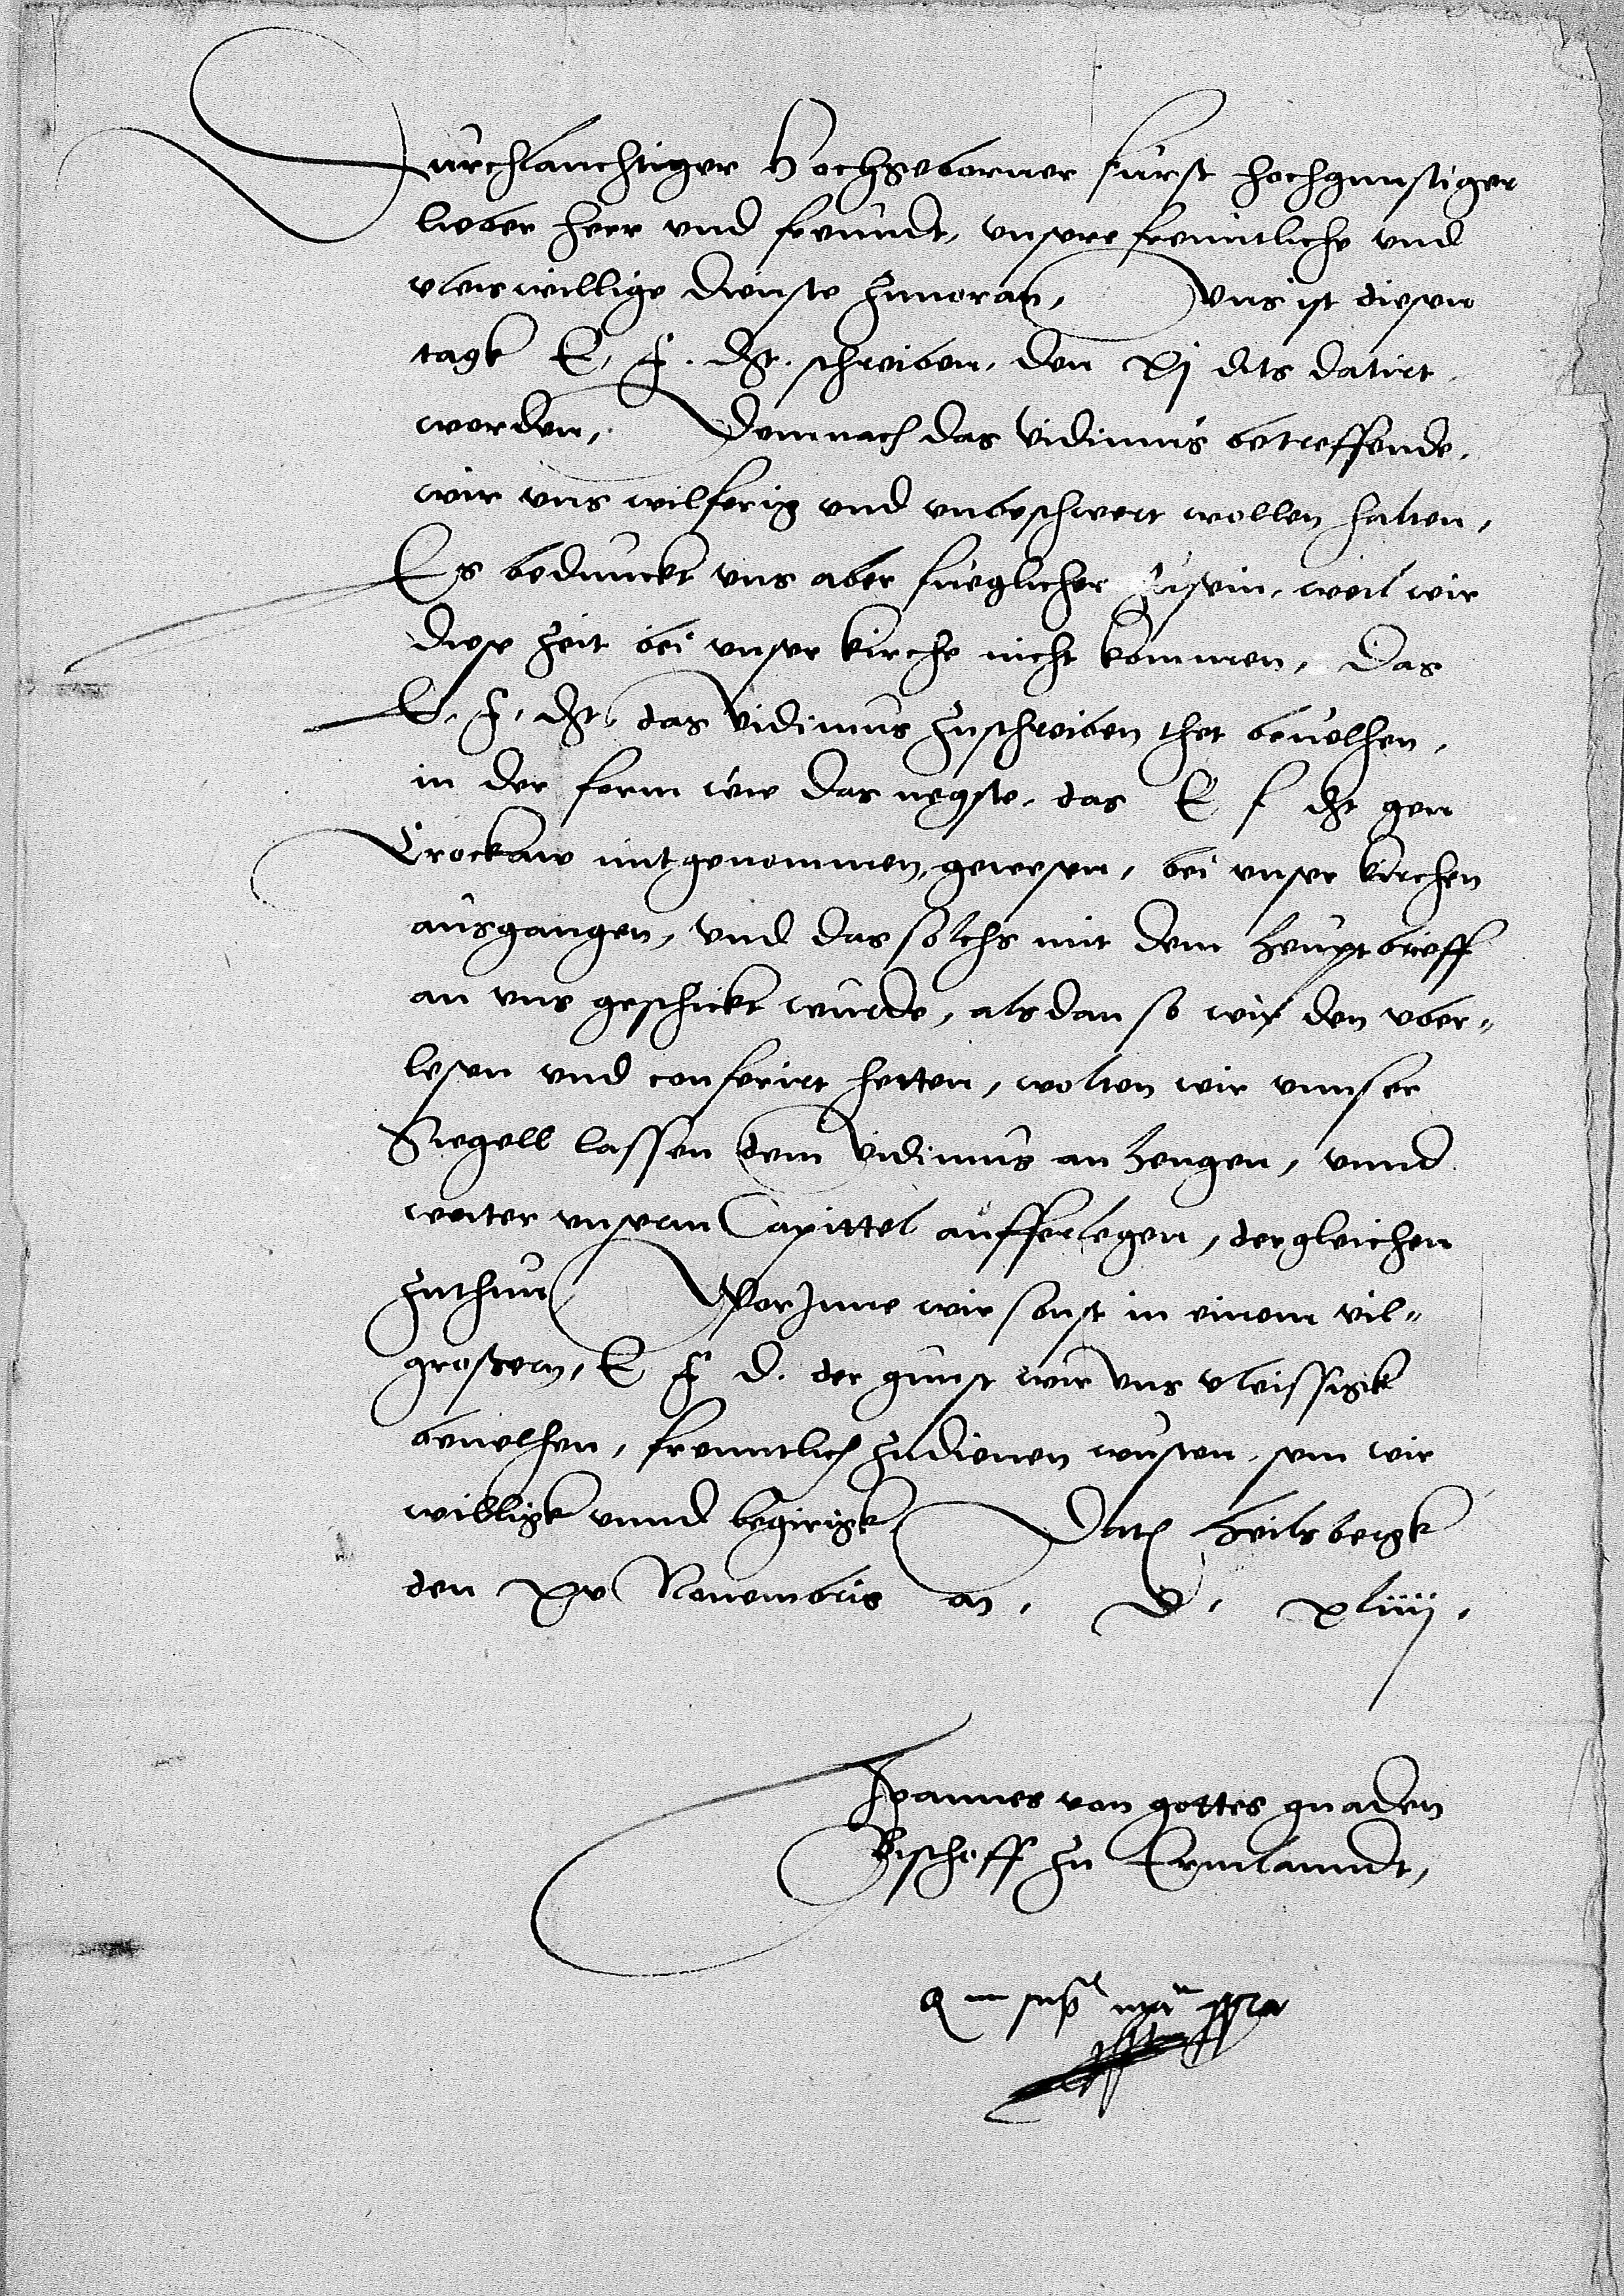 Durchlauchtiger Hochgeborner furst hochgunstiger
lieber herr vnd freundt, vnsere freuntliche vnd
vleiswillige dienste zuuoran, Vns ist diesen
tagk E. F. dht. schreiben, den xj dits datirt
worden, Demnach das Vidimus betreffende,
wir vns wilferig vnd vnbeschwert wollen halten,
Es bedunckt vns aber fueglicher zusein, weil wir
diese zeit bei vnser kirche nicht kommen, Das
E. F. dht. das Vidimus zuschreiben thet beuelhen,
in der form wie das negste, das E f dht gen
Crockaw mitgenommen, gewesen, bei vnser kirchen
ausgangen, vnd das solchs mit dem heuptbrieff
an vns geschickt wurde, als dan so wir den vber-
lesen vnd conferirt hetten, wolten wir vnnser
Siegell lassen dem Vidimus an hengen, vnnd
weiter vnserm Capittel aufferlegen, dergleichen
zuthun Worjnne wir sonst in einem vil-
grossern, E F D. der gunst wir vns vleissigk
beuelhen, freuntlich zudienen wusten, sein wir
willigk vnnd begirigk Dat Heilsbergk
den xv Nouembris an. D. xliiij.
Joannes von gottes gnaden
Bischoff zu Ermlanndt,